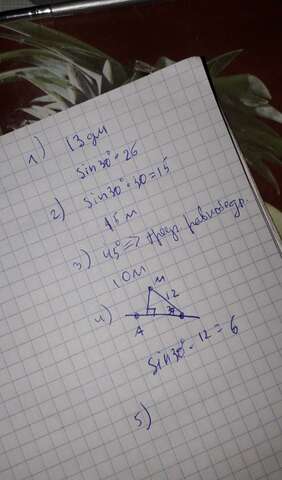 1) 13 дм
sin30°·26
2) sin30°·30=15
15 м
3) 45° => треуг равнобедр.
10м
4) M
12
30
A
sin30°·12=6
5)